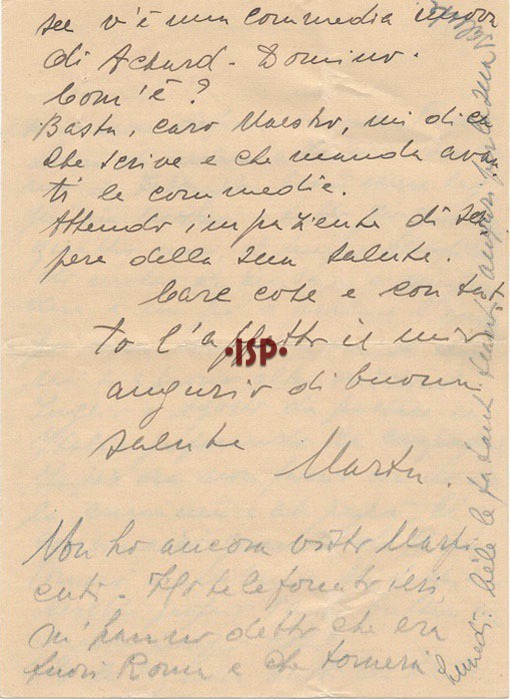 se v'è una commedia nuova
di Achard - Domino.
Com'è?
Basta, caro Maestro, mi dica
che scrive e che manda avan
ti le commedie.
Attendo impaziente di sa
pere della sua salute.
Care cose e con tut
to l'affetto il mio
augurio di buona
salute
Marta.
Non ho ancora visto Marpi
cati - Ho telefonato ieri,
m'hanno detto che era
fuori Roma e che tornerà
lunedì. Cele le fa tanti tanti auguri per la sua
·ISP·